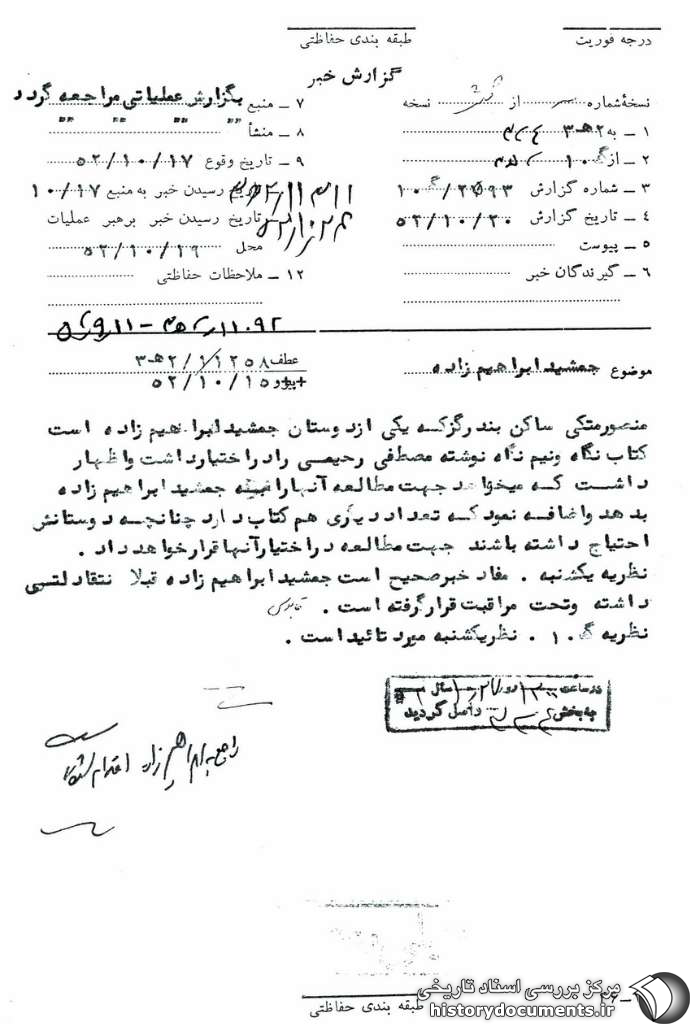 درجه فوریت
طبقه بندی حفاظتی
گزارش خبر
نسخهٔ شماره از نسخه
۱ ــ به ۲هـ۳
۲ ــ از ۱۰گ
۳ ــ شماره گزارش
۴ ــ تاریخ گزارش ۵۲/۱۰/۲۰
۵ ــ پیوست
۶ ــ گیرندگان خبر
۷ ــ منبع بگزارش عملیاتی مراجعه گردد
۸ ــ منشأ
۹ ــ تاریخ وقوع ۵۲/۱۰/۱۷
تاریخ رسیدن خبر به منبع ۱۰/۱۷
تاریخ رسیدن خبر برهبر عملیات
محل ۵۲/۱۰/۱۹
۱۲ ــ ملاحظات حفاظتی
موضوع جمشید ابراهیم زاده
عطف ۳هـ۲/۱۱۲۵۸
پیرو ۵۲/۱۰/۱۵
منصورمتکی ساکن بندرگزکه یکی ازدوستان جمشیدابراهیم زاده است
کتاب نگاه ونیم نگاه نوشته مصطفی رحیمی رادراختیارداشت واظهار
داشت که میخواهد جهت مطالعه آنهارا به جمشید ابراهیم زاده
بدهد واضافه نمود که تعداد دیگری هم کتاب دارد چنانچه دوستانش
احتیاج داشته باشند جهت مطالعه دراختیارآنها قرارخواهد داد .
نظریه یکشنبه . مفاد خبرصحیح است جمشیدابراهیم زاده قبلا
داشته وتحت مراقبت قرارگرفته است .
نظریه ۱۰گ . نظریکشنبه مورد تائیداست .
در ساعت روز سال
به بخش واصل گردید
راجع به ابراهیم زاده اقدام
طبقه بندی حفاظتی
مرکز بررسی اسناد تاریخی
historydocuments.ir